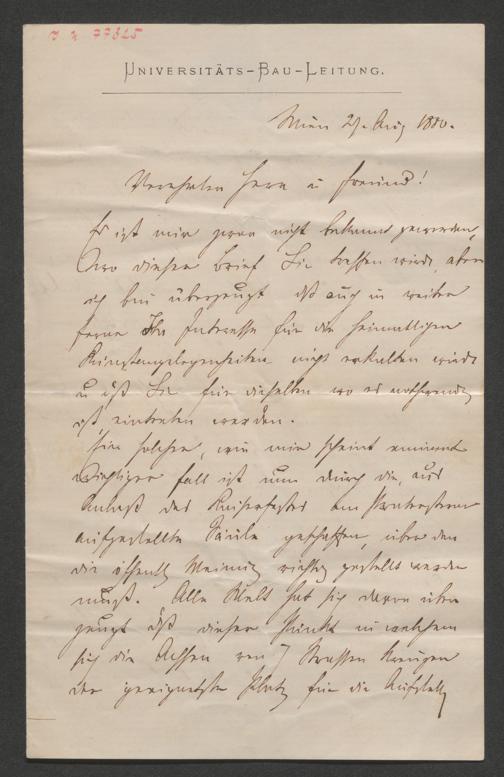 J. N. 77815
UNIVERSITÄTS-BAU-LEITUNG.
Wien 29. Aug 1880.
Verehrter Herr u Freund!
Es ist mir zwar nicht bekannt geworden,
wo dieser Brief Sie treffen wird, aber
ich bin überzeugt dß auch in weiter
Ferne Ihr Interesse für die heimatlichen
Kunstangelegenheiten nicht erkalten wird
u dß Sie für dieselben wo es nothwendig
ist, eintreten werden.
Ein solcher, wie mir scheint eminent
wichtiger Fall ist nun durch die, aus
Anlaß des Kaiserfestes am Praterstern
aufgestellte Säule geschaffen, über den
die öffentl Meinung richtig gestellt werden
muß. Alle Welt hat sich davon über
zeugt dß dieser Punkt in welchem
sich die Achsen von 7 Strassen kreuzen
der geeignetste Platz für die Aufstellg